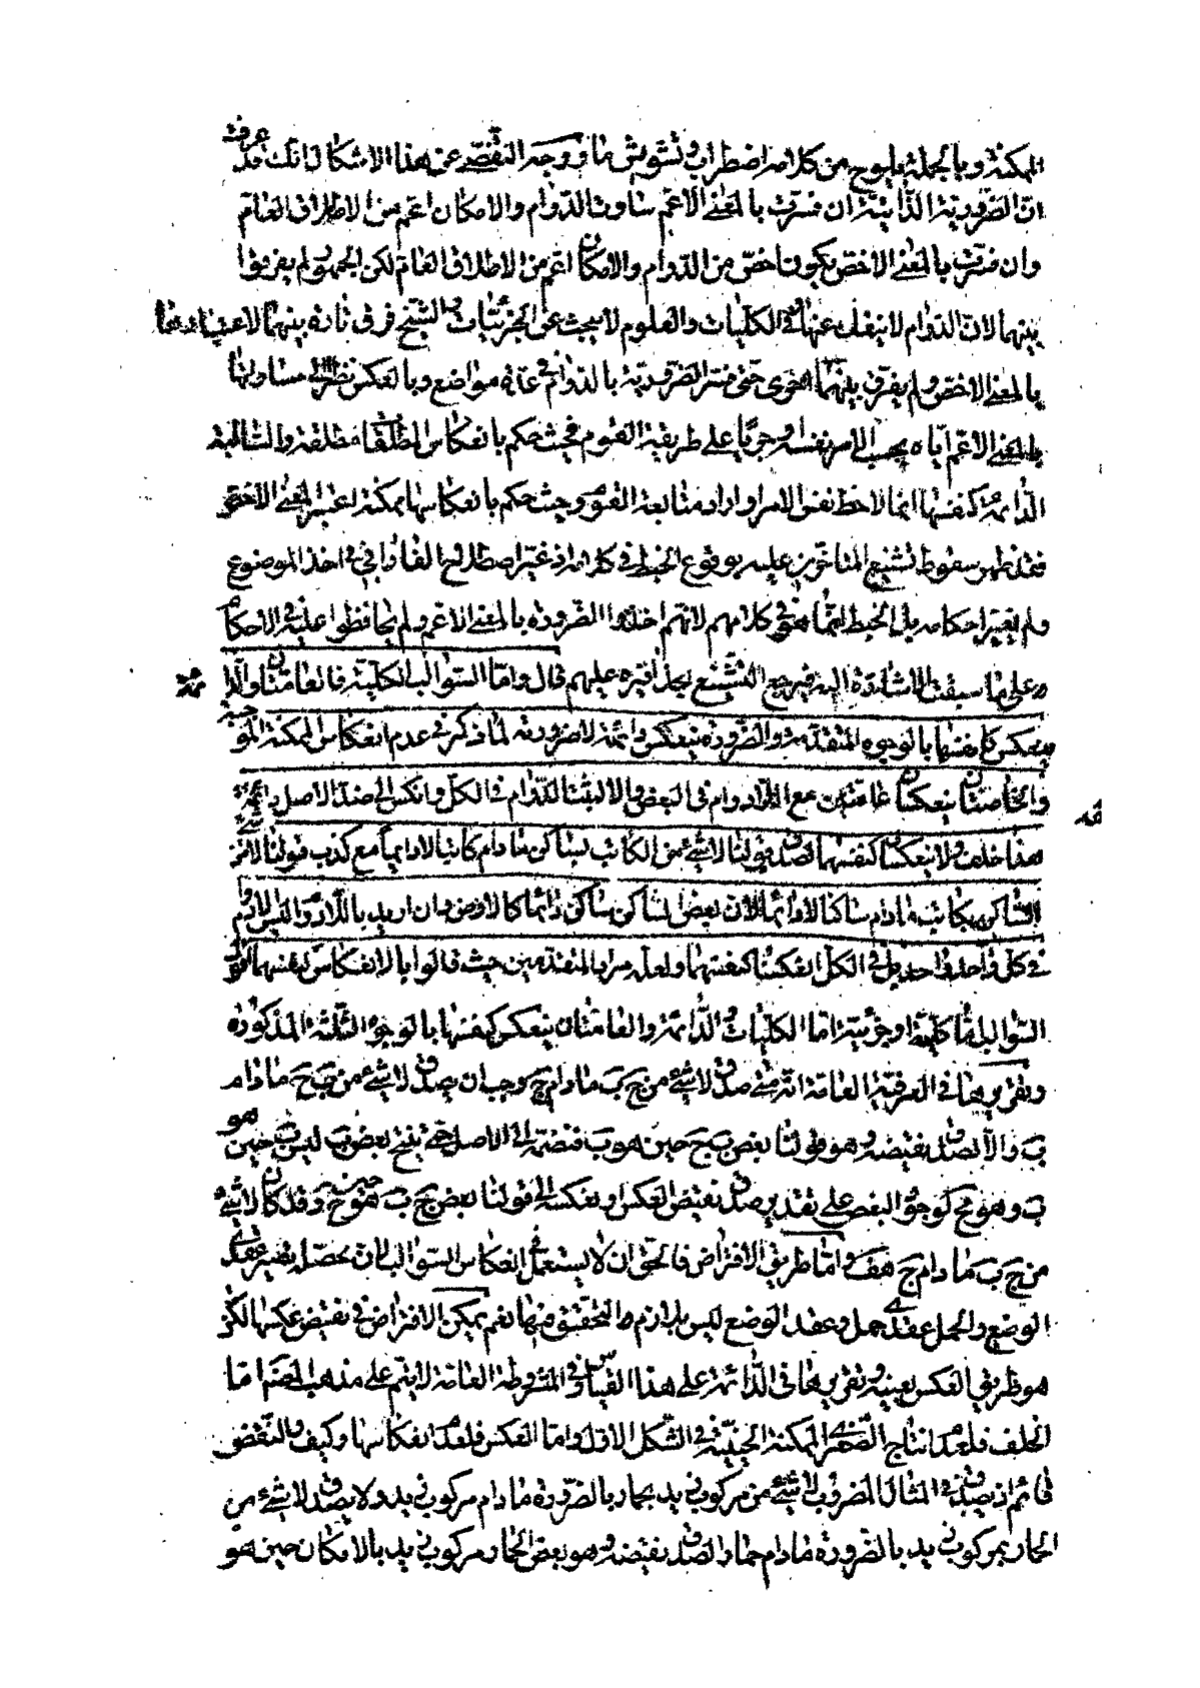 الممكنة وبالجملة يلوح من كلامه اضطراب وتشويش ما ووجه التفصّي عن هذا الاشكال انك قد عرفت
ان الضرورية الذاتية ان فسرت بالمعنى الاعم ساوت الدوام والامكان اعم من الاطلاق العام
وان فسرت بالمعنى الاخص يكون اخص من الدوام والامكان اعم من الاطلاق العام لكن الجمهور لم يفرقوا
بينهما لان الدوام لا ينفك عنها في الكليات والعلوم لا يبحث عن الجزئيات والشيخ فرق تارة بينهما لاعتبارها
بالمعنى الاخص ولم يفرق بينهما اخرى حتى فسر الضرورية بالدوام في عدة مواضع وبالعكس نظرا الى مساواتها
بالمعنى الاعم اياه بحسب الامر نفسه وجريا على طريقة القوم فحيث حكم بانعكاس المطلقة مطلقة والسالبة
الدائمة كنفسها انما لاحظ نفس الامر واراد متابعة القوم وحيث حكم بانعكاسها ممكنة اعتبر المعنى الاخص
فقد ظهر سقوط تشنيع المتاخرين عليه بوقوع الخبط في كلامه اذ غير اصطلاح الفارابي في اخذ الموضوع
ولم يغير احكامه بل الخبط انما هو في كلامهم لانهم اخذوا الضرورة بالمعنى الاعم ولم يحافظوا عليه في الاحكام
على ما سبقت الاشارة اليه فيرجع التشنيع بحذافيره عليهم قال واما السوالب الكلية فالعامتان والدائمة
ينعكس كنفسها بالوجوه المتقدمة والضرورة ينعكس دائمة لا ضرورية لما ذكر في عدم انعكاس الممكنة الموجبة
والخاصتان ينعكسان عامتين مع اللادوام في البعض والا لثبت الدوام في الكل وانعكس الى ضد الاصل دائمة
هذا خلف ولا ينعكسان كنفسهما لصدق قولنا لا شيء من الكاتب بساكن ما دام كاتبا لا دائما مع كذب قولنا لا شيء من
الساكن بكاتب ما دام ساكنا لا دائما لان بعض الساكن ساكن دائما كالارض وان اريد باللادوام اللادوام
في كل واحد واحد بل في الكل انعكستا كنفسهما ولعله مراد المتقدمين حيث قالوا بالانعكاس كنفسهما اقول
السوالب اما كلية او جزئية اما الكليات والدائمة والعامتان ينعكس كنفسها بالوجوه الثلثة المذكورة
وتقريرها في العرفية العامة انه متى صدق لا شيء من ج ب ما دام ج وجب ان يصدق لا شيء من ب ج ما دام
ب والا لصدق نقيضه وهو قولنا بعض ب ج حين هو ب فنضمه الى الاصل حتى ينتج بعض ب ليس ب حين هو
ب وهو مح لوجود البعض على تقدير صدق نقيض العكس او نعكسه الى قولنا بعض ج ب حين هو ج وقد كان لا شيء
من ج ب ما دام ج هف واما طريق الافتراض فالحق ان لا يستعمل في انعكاس السوالب لان محصله تغيير عقدي
الوضع والحمل عقدي حمل وعقد الوضع ليس بلازم التحقيق فيها نعم يمكن الافتراض في نقيض عكسها لكن
هو طريق العكس بعينه وتقريرها في الدائمة على هذا القياس وفي المشروطة العامة لا يتم على مذهب المصنف اما
الخلف فلعدم انتاج الصغرى الممكنة الحينية في الشكل الاول واما العكس فلعدم انعكاسها وكيف والنقض
قائم اذ يصدق في المثال المضروب لا شيء من مركوب زيد بحمار بالضرورة ما دام مركوب زيد ولا يصدق لا شيء من
الحمار بمركوب زيد بالضرورة ما دام حمارا لصدق نقيضه وهو بعض الحمار مركوب زيد بالامكان حين هو